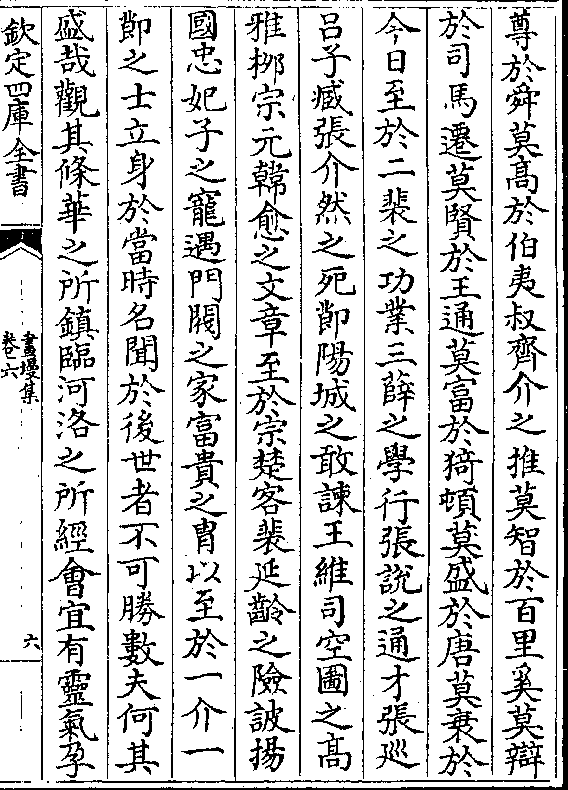 尊於舜莫髙於伯夷叔齊介之推莫智於百里奚莫辯
於司馬遷莫賢於王通莫富於猗頓莫盛於唐莫衰於
今日至於二裴之功業三薛之學行張説之通才張廵
吕子臧張介然之死節陽城之敢諫王維司空圖之髙
雅桞宗元韓愈之文章至於宗楚客裴延齡之險詖揚
國忠妃子之寵遇門閥之家富貴之胄以至於一介一
節之士立身於當時名聞於後世者不可勝數夫何其
盛哉觀其條華之所鎮臨河洛之所經會宜有靈氣孕
欽定四庫全書
畫墁集
卷六
六